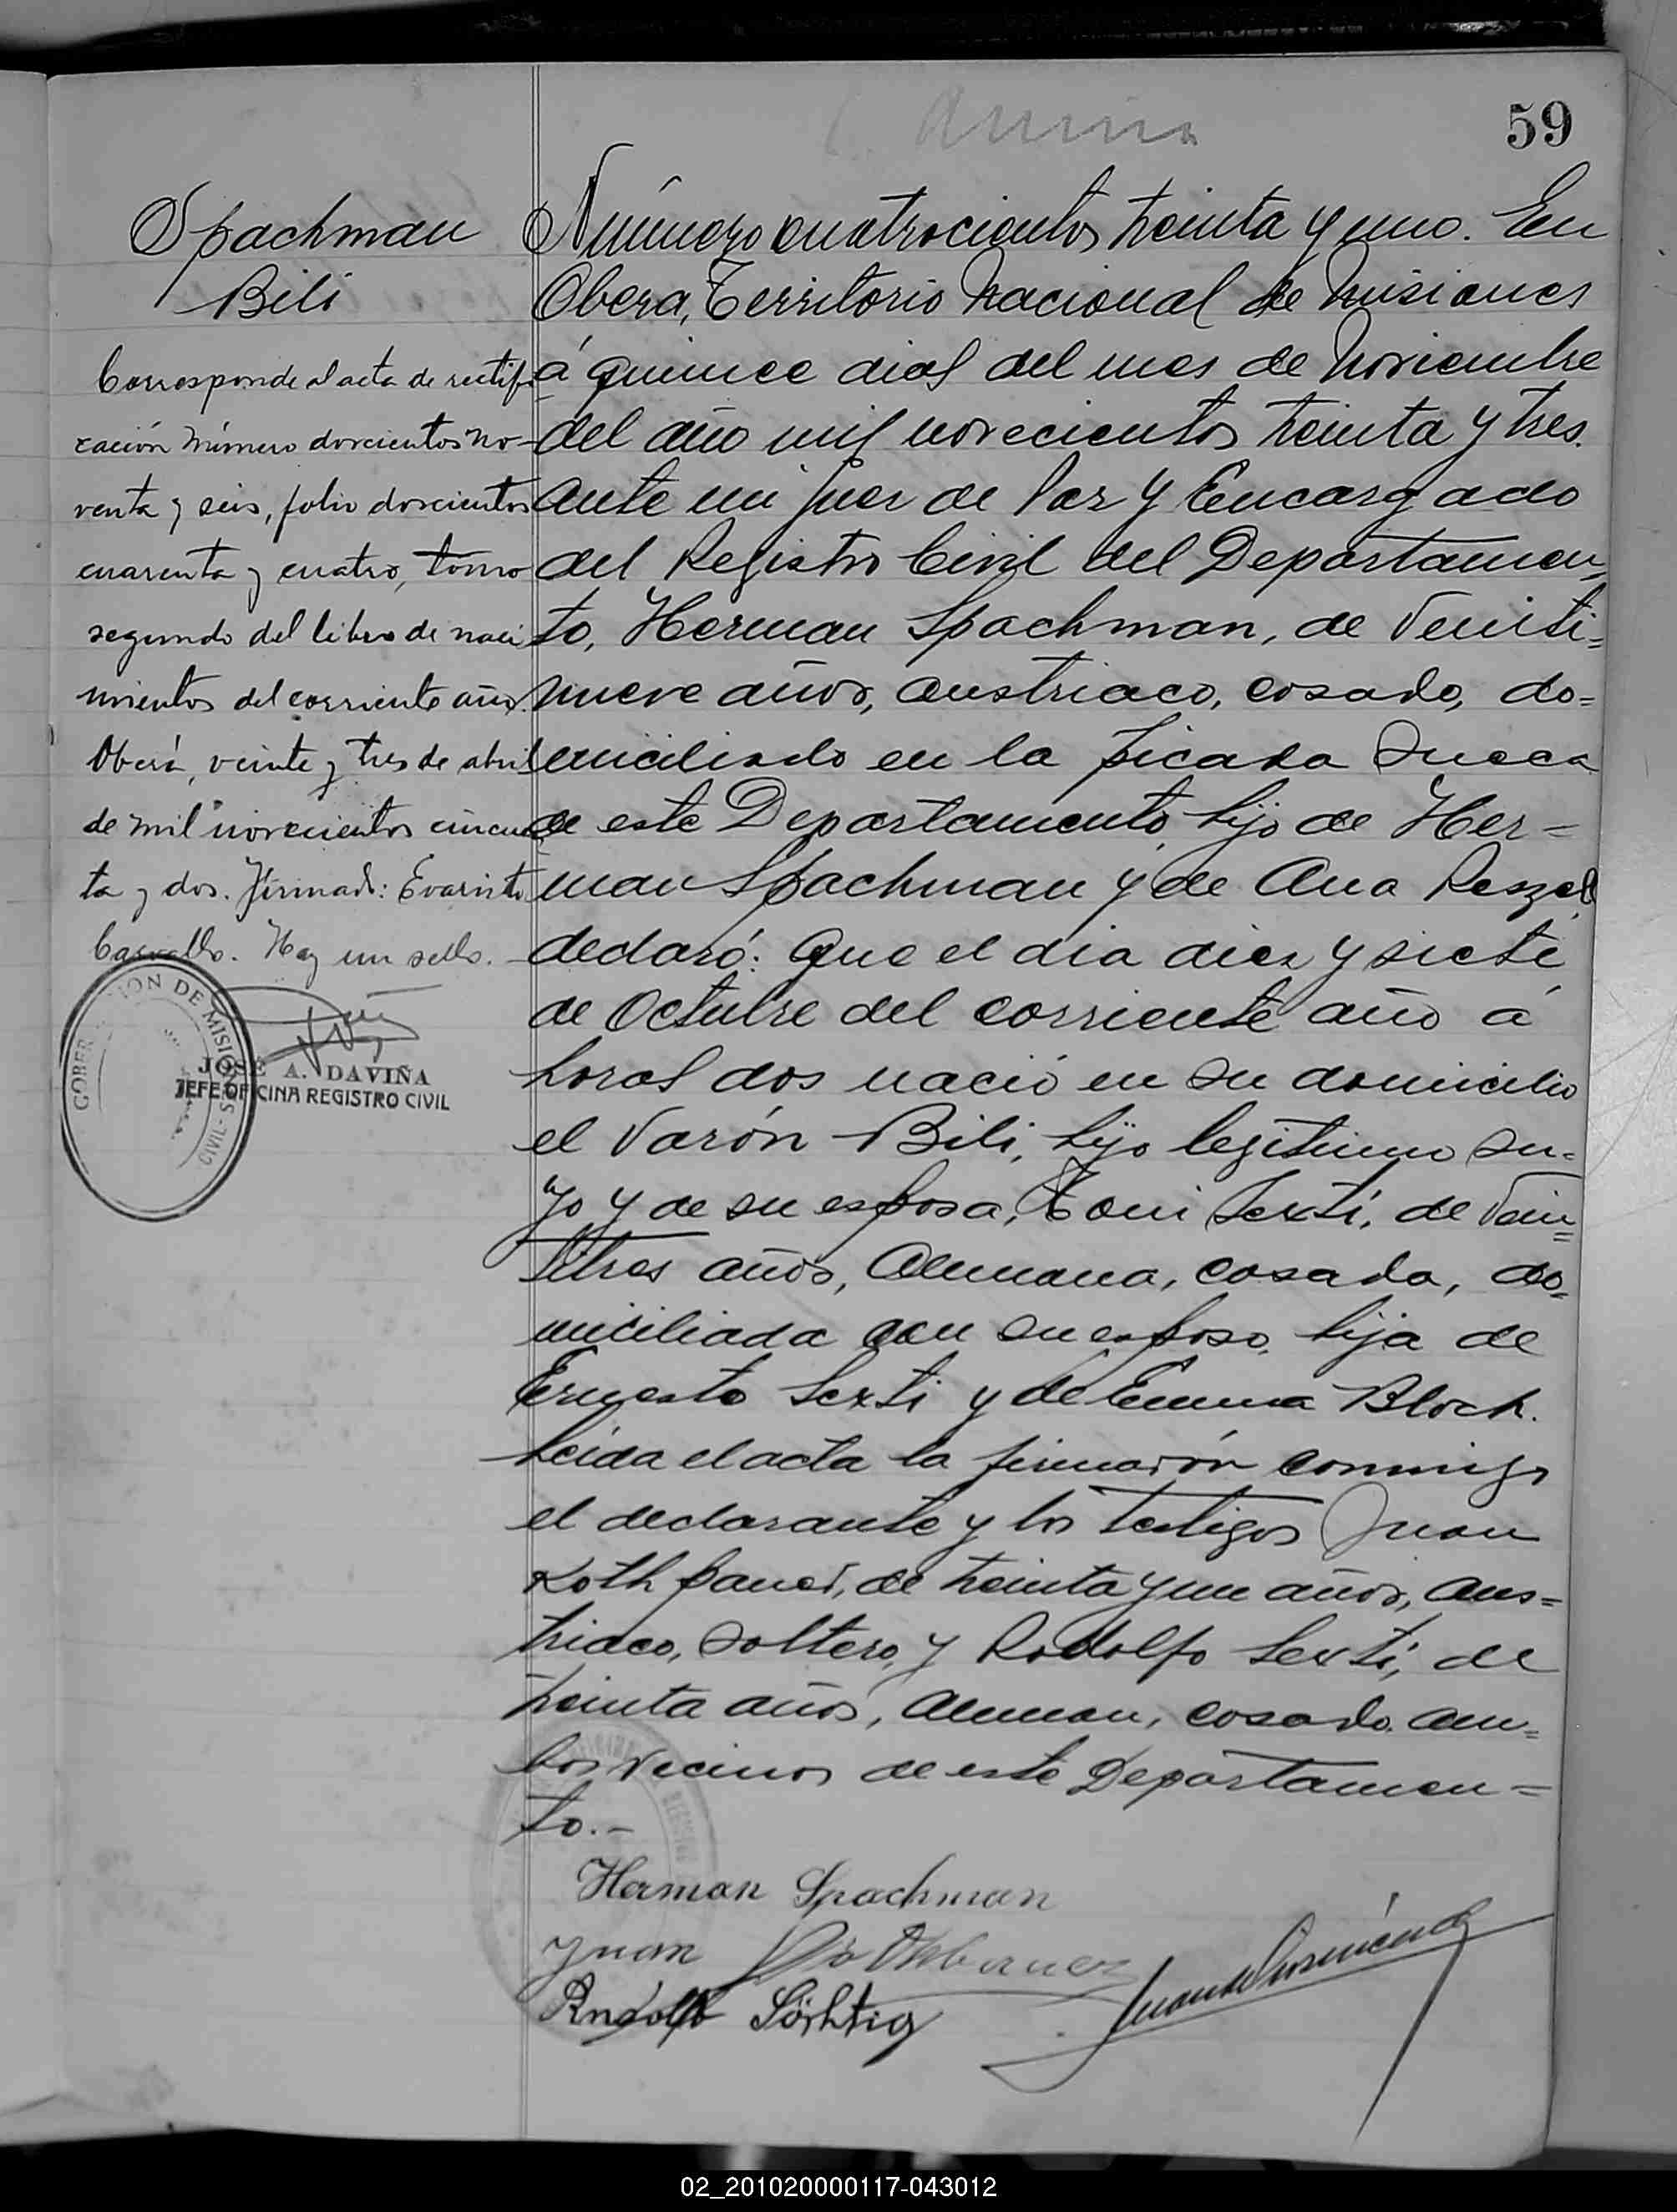 59
Spachman
Bili
Corresponde al acta de rectifi
cación número doscientos no-
venta y seis, folio doscientos
cuarenta y cuatro, tomo
segundo del libro de naci
mientos del corriente año.
Oberá, veinte y tres de abril
de mil novecientos cincuen
ta y dos. Firmado: Evaristo
Carvallo. Hay un sello.
GOBER ION DE MISIONES
CIVIL-
JOSÉ A. DAVIÑA
JEFE OFICINA REGISTRO CIVIL
Número cuatrocientos treinta y uno. En
Obera, Territorio Nacional de Misiones
á quince dias del mes de Noviembre
del año mil novecientos treinta y tres.
ante mi juez de Paz y Encargado
del Registro Civil del Departamen
to, Herman Spachman, de Veinti=
nueve años, austriaco, casado, do=
miciliado en la picada Sueca
de este Departamento, hijo de Her=
man Spachman y de Ana Reszel
declaró: Que el dia diez y siete
de Octubre del corriente año á
horas dos nació en su domicilio
el Varón Bili, hijo legitimo su=
yo y de su esposa, Toni Sexti, de Vein=
titres años, Alemana, casada, do=
miciliada con su esposo, hija de
Ernesto Sexti y de Emma Bloch.
Leida el acta la firmarón conmigo
el declarante y los testigos Juan
Rothpauer, de treinta y un años, aus=
triaco, soltero, y Rodolfo Sexti, de
treinta años, Aleman, casado. am=
bos vecinos de este Departamen=
to.-
Herman Spachman
Juan Rothbauer
Rudolf Söchtig